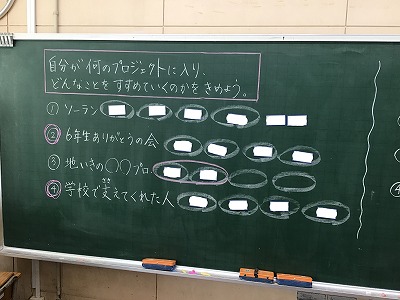 自分が何のプロジェクトに入り、
どんなことをすすめていくのかをきめよう。
① ソーラン
② 6年生ありがとうの会
③ 地いきの〇〇プロ
④ 学校で支えてくれた人
ささ